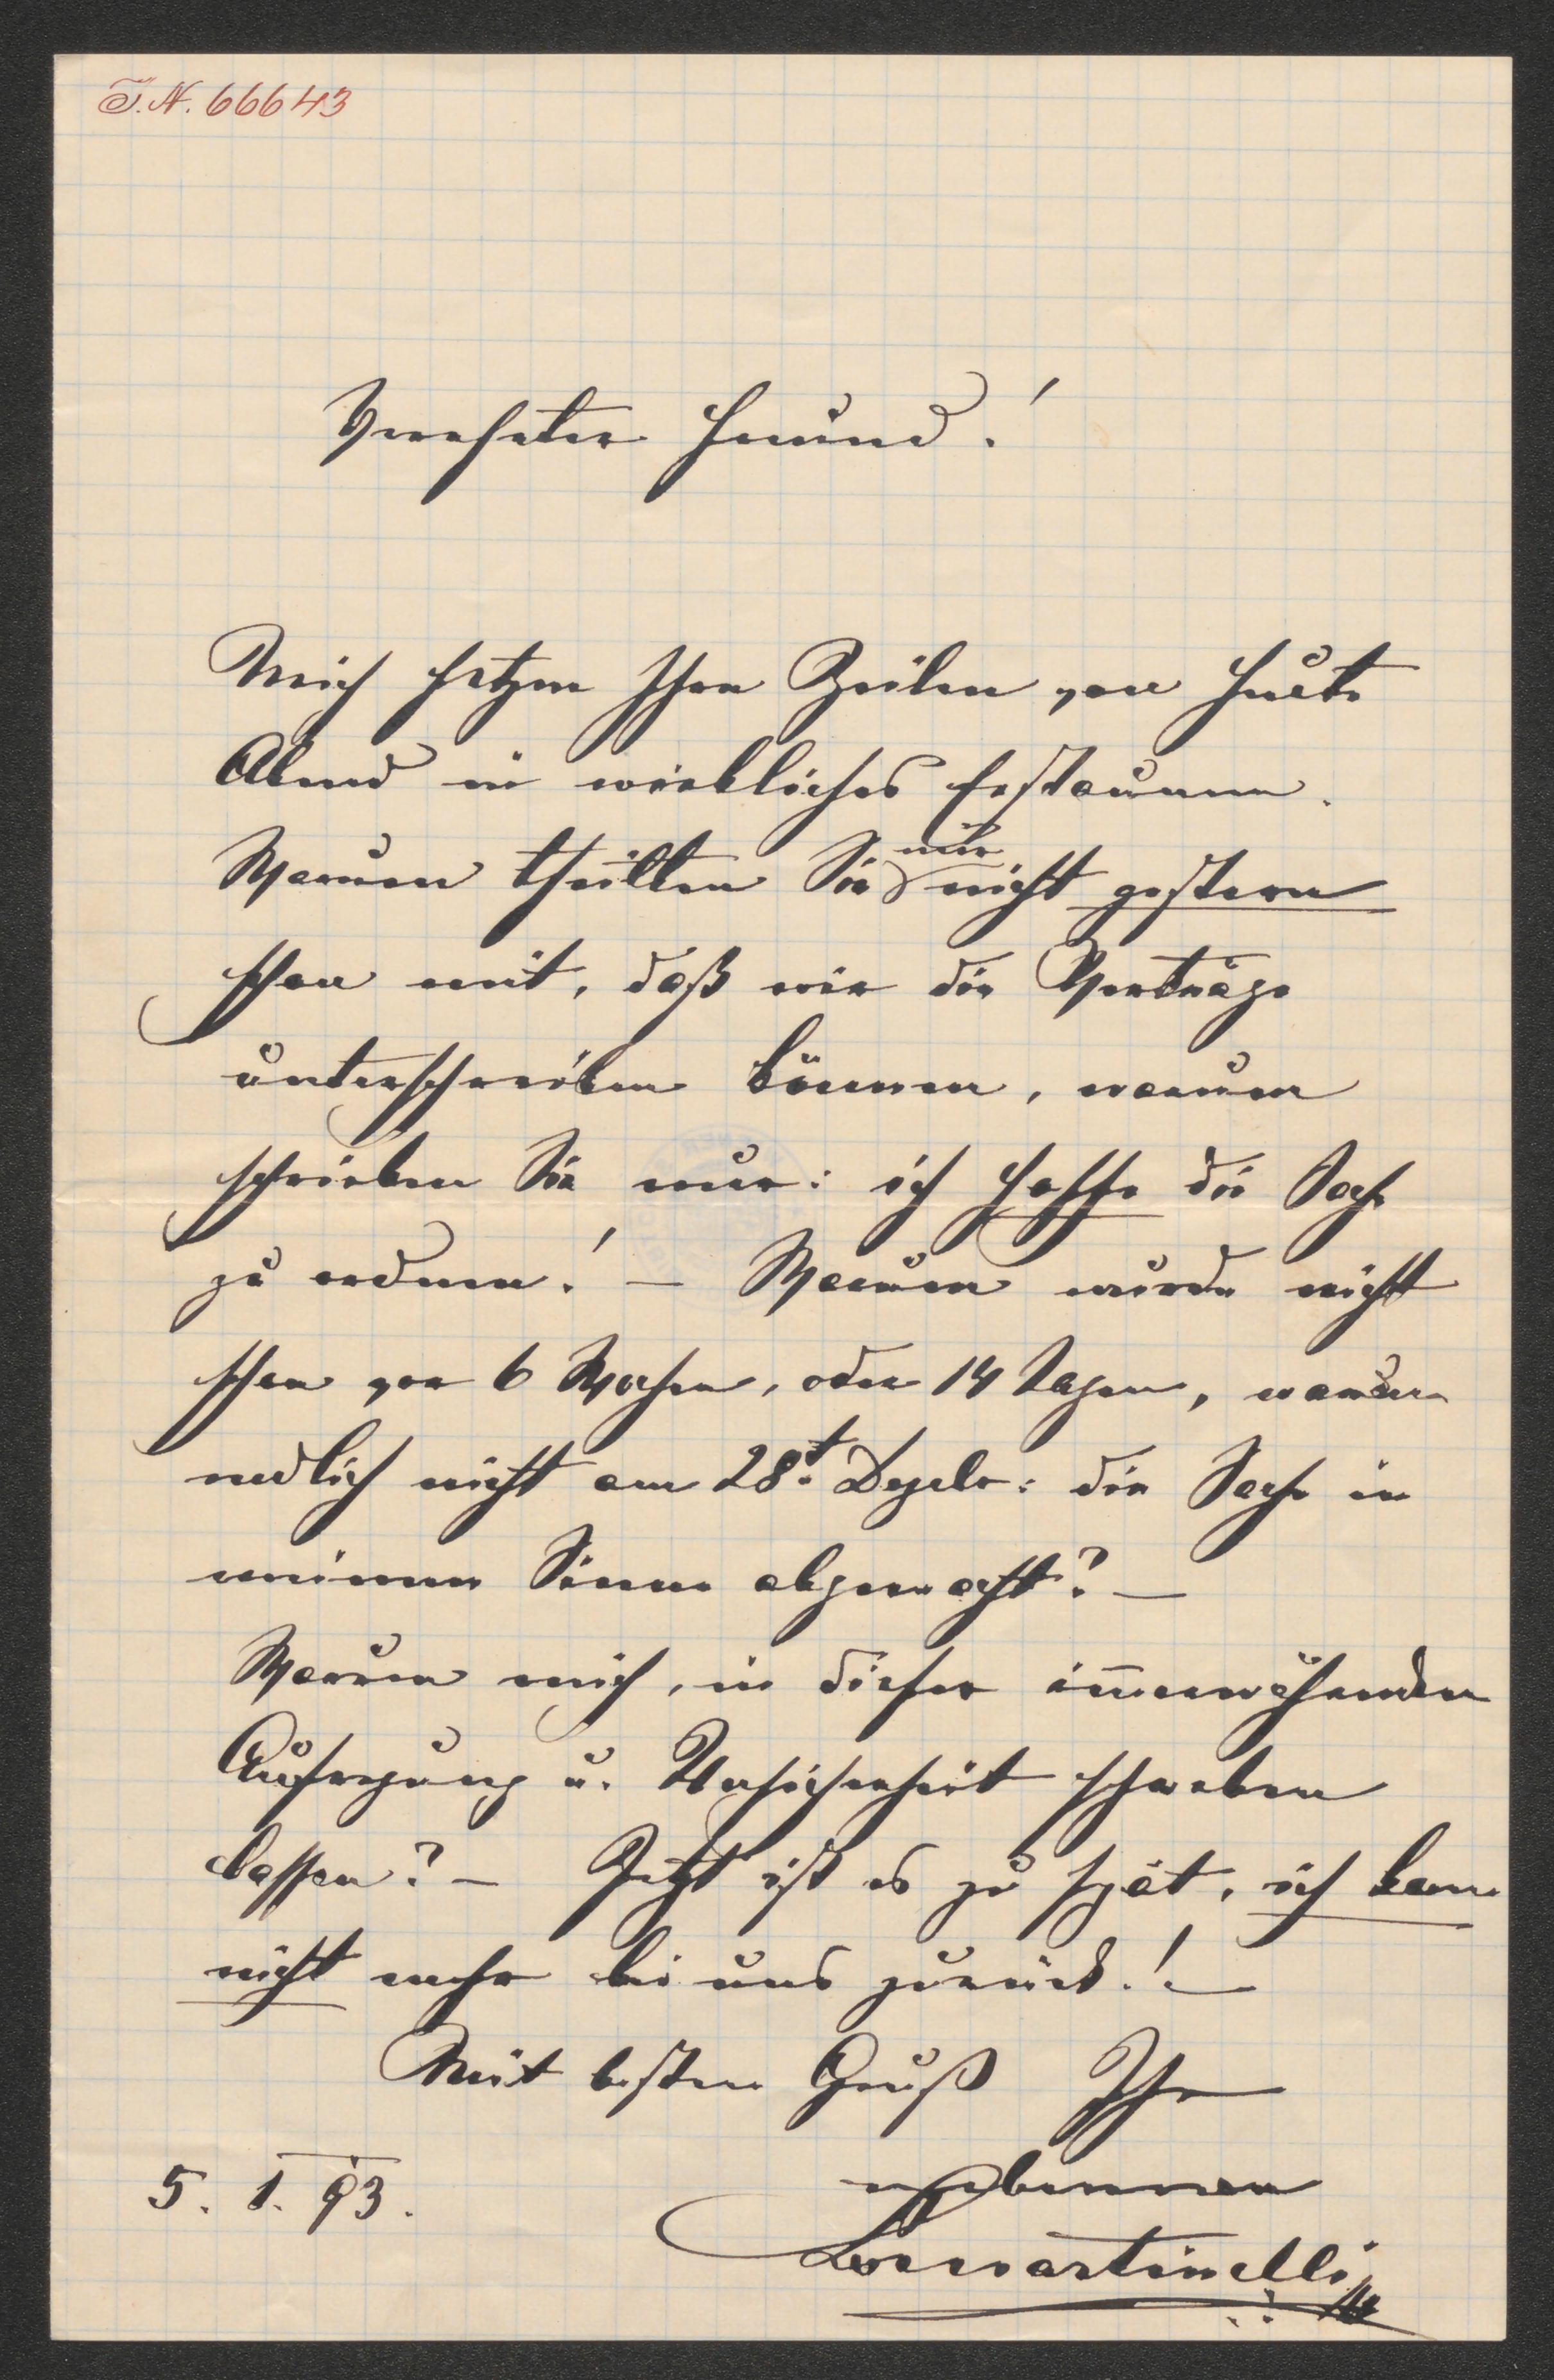 I.N. 66643
Verehrter Freund!
Mich setzen Ihre Zeilen von heute
Abend in wirkliches Erstaunen.
Warum theilten Sie mir nicht gestern
schon mit, daß wir die Verträge
unterschreiben können, warum
schrieben Sie nur: ich hoffe die Sache
zu ordnen! — Warum wurde nicht
schon vor 6 Wochen, oder 14 Tagen, warum
endlich nicht am 28t. Dezebr: die Sache in
meinem Sinne abgemacht? —
Warum mich, in dieser im̅erwährenden
Aufregung u. Unsicherheit schweben
lassen? — Jetzt ist es zu spät, ich kann
nicht mehr bei uns zurück! —
Mit besten Gruß Ihr
ergebenen
LouMartinelli
5. 1. 93.